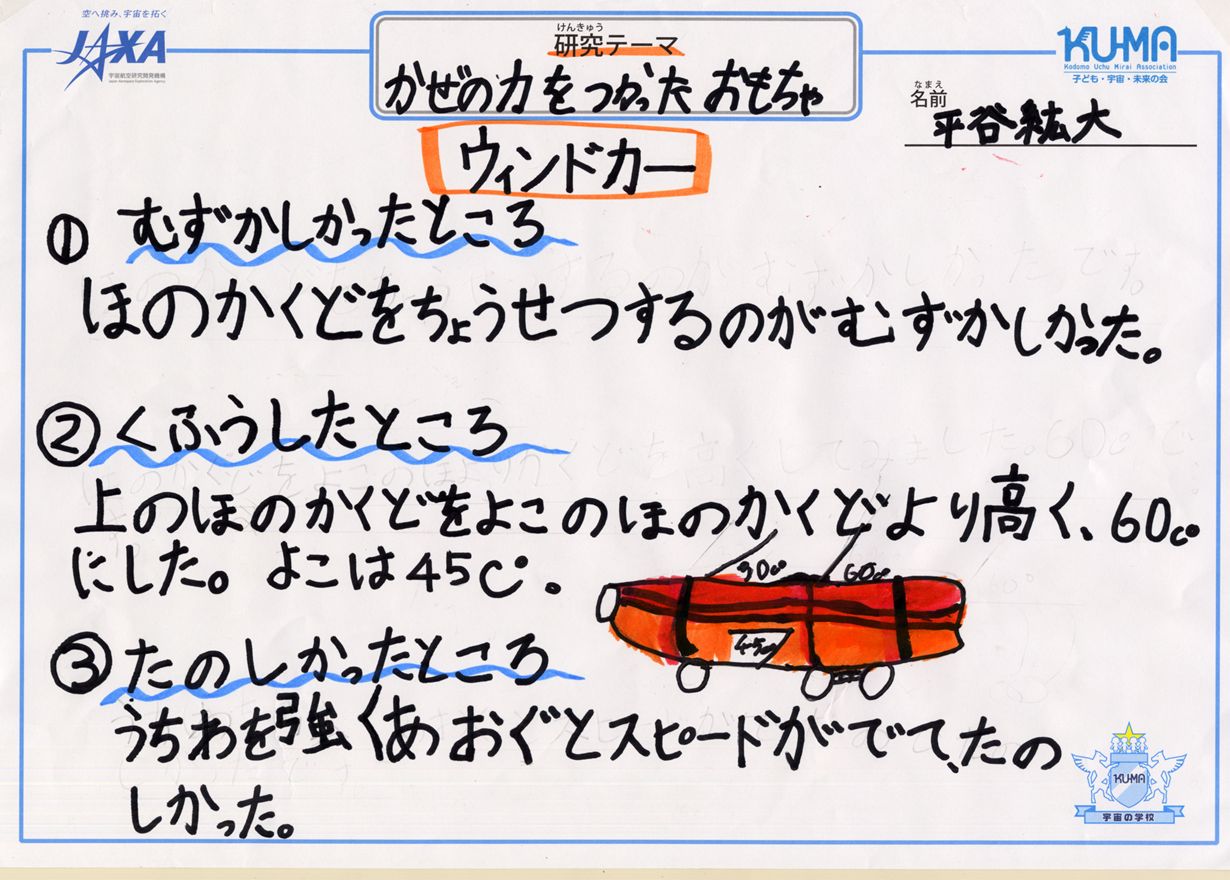 空へ挑み、宇宙を拓く
JAXA
宇宙航空研究開発機構
Japan Aerospace Exploration Agency
けんきゅう
研究テーマ
かぜの力をつかったおもちゃ
KU-MA
Kodomo Uchu Mirai Association
子ども・宇宙・未来の会
なまえ
名前
平谷紘大
ウィンドカー
① むずかしかったところ
ほのかくどをちょうせつするのがむずかしかった。
② くふうしたところ
上のほのかくどをよこのほのかくどより高く、60c°
にした。よこは45c°。
90c° 60c°
45c°
③ たのしかったところ
うちわを強くあおぐとスピードがでて、たの
しかった。
KU-MA
宇宙の学校